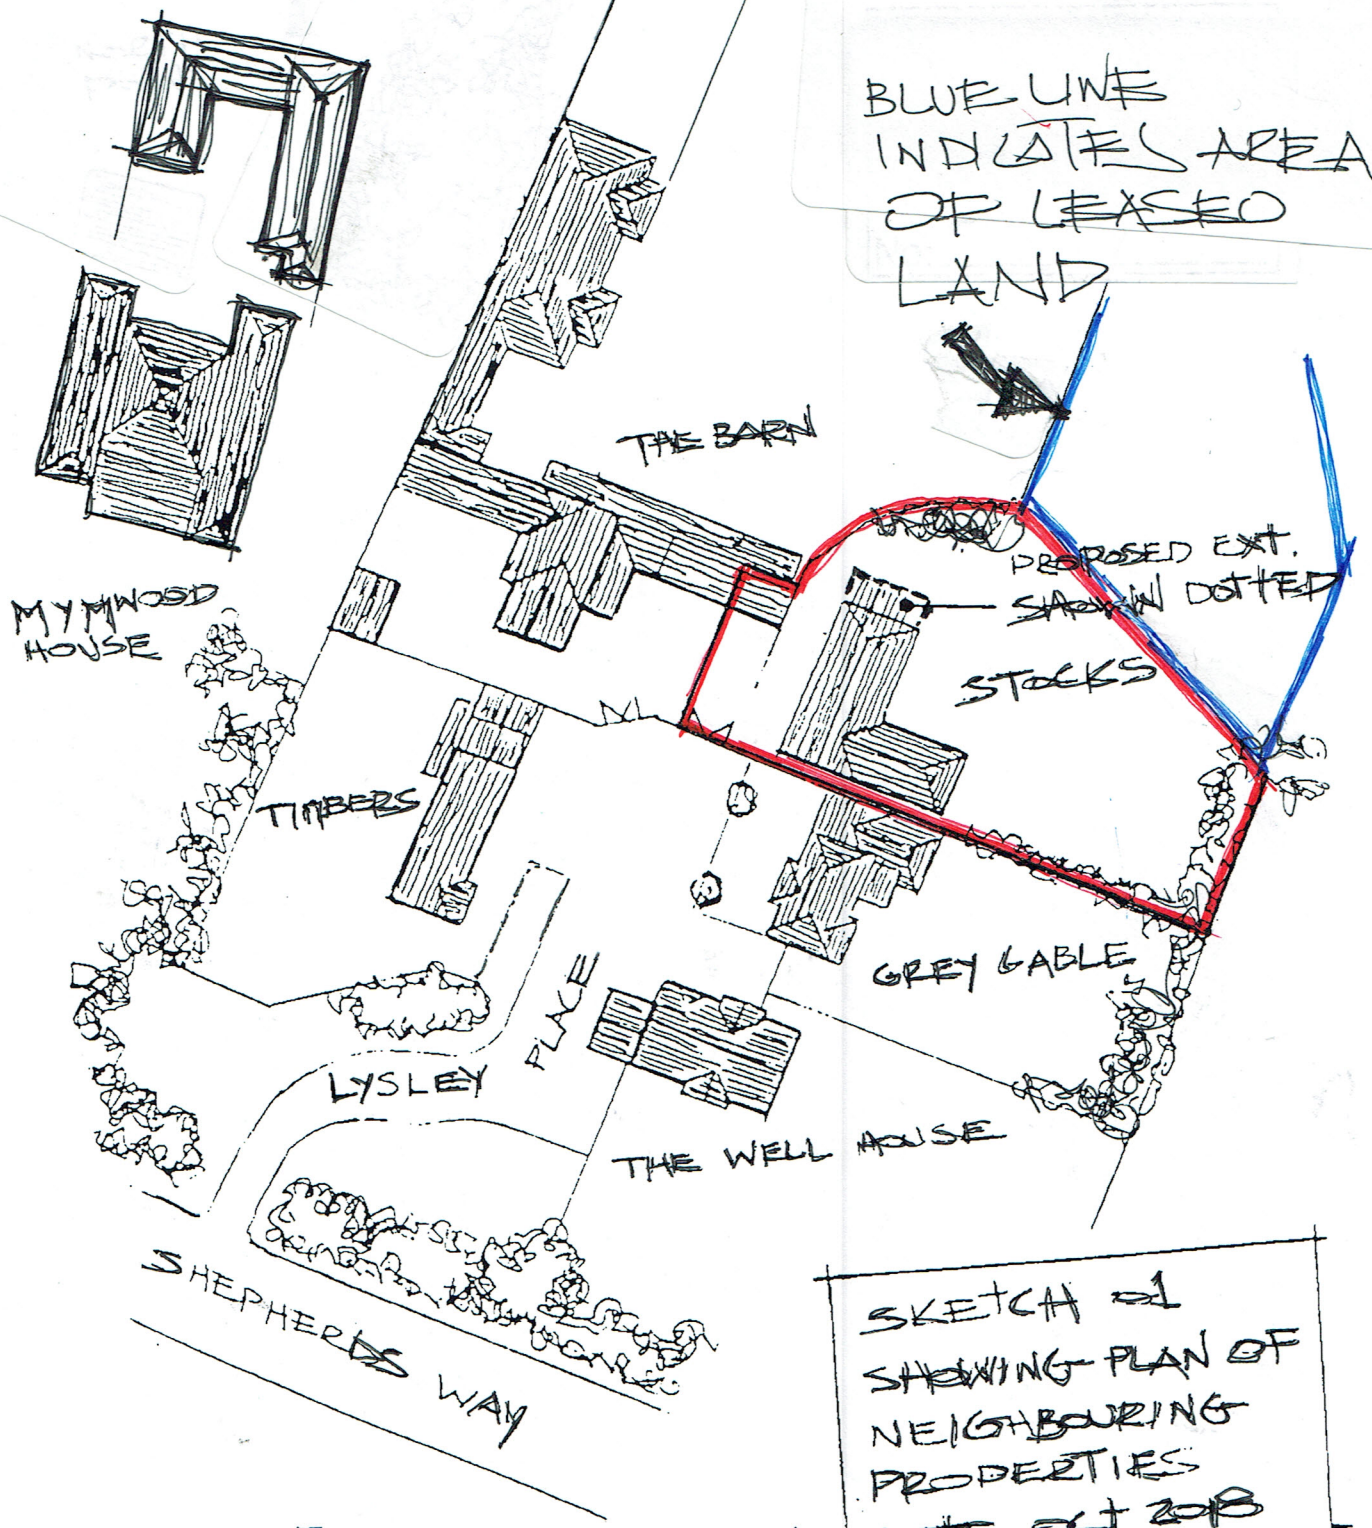 BLUE LINE
INDICATES AREA
OF LEASED
LAND
THE BARN
PROPOSED EXT.
SHOWN DOTTED
STOCKS
MYMWOOD
HOUSE
TIMBERS
GREY GABLE
PLACE
LYSLEY
THE WELL HOUSE
SHEPHERDS WAY
SKETCH 01
SHOWING PLAN OF
NEIGHBOURING
PROPERTIES
2018